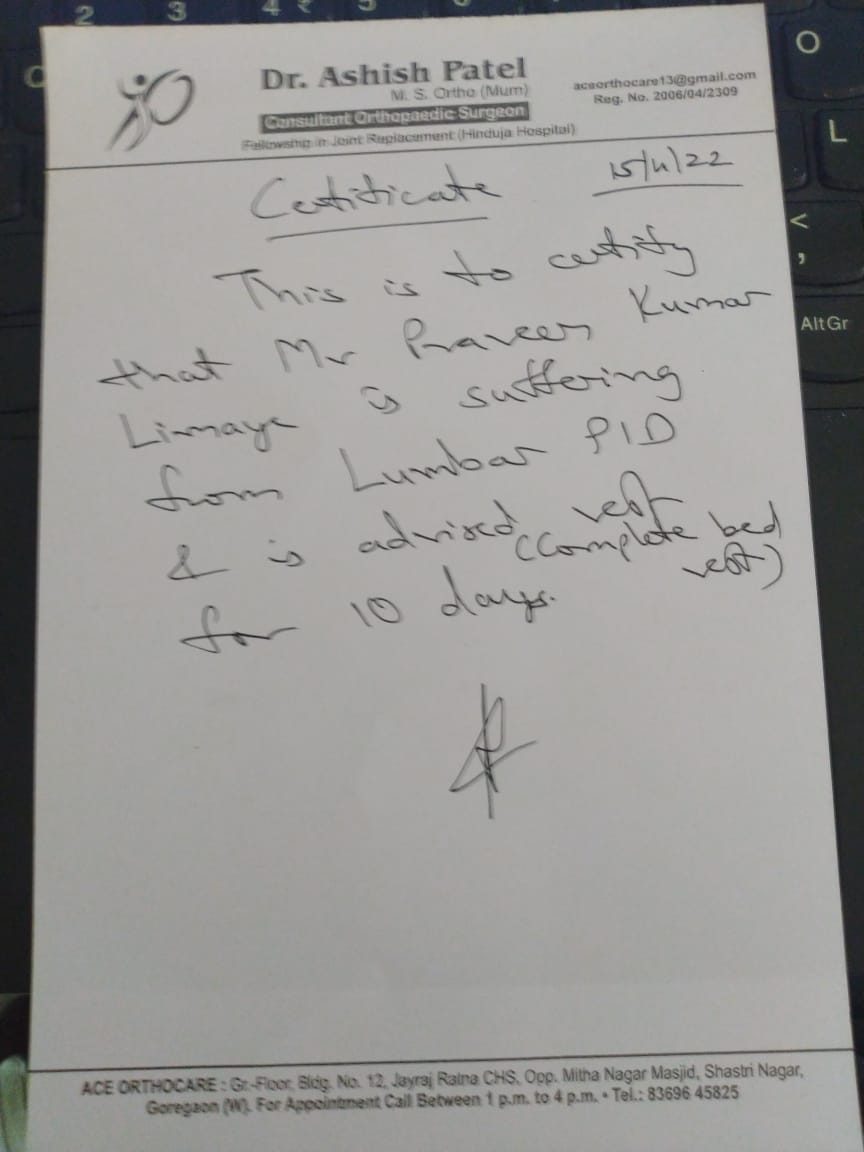 Dr. Ashish Patel
M. S. Ortho (Mum)
Consultant Orthopaedic Surgeon
Fellowship in Joint Replacement (Hinduja Hospital)
aceorthocare13@gmail.com
Reg. No. 2006/04/2309
Certificate
15/11/22
This is to certify
that Mr Praveen Kumar
Limaye is suffering
from Lumbar PID
& is advised rest
(Complete bed
rest)
for 10 days.
ACE ORTHOCARE : Gr.-Floor, Bldg. No. 12, Jayraj Ratna CHS, Opp. Mitha Nagar Masjid, Shastri Nagar,
Goregaon (W). For Appointment Call Between 1 p.m. to 4 p.m. • Tel.: 83696 45825
2 3 4 ₹ 5
O
L
<
,
Alt Gr